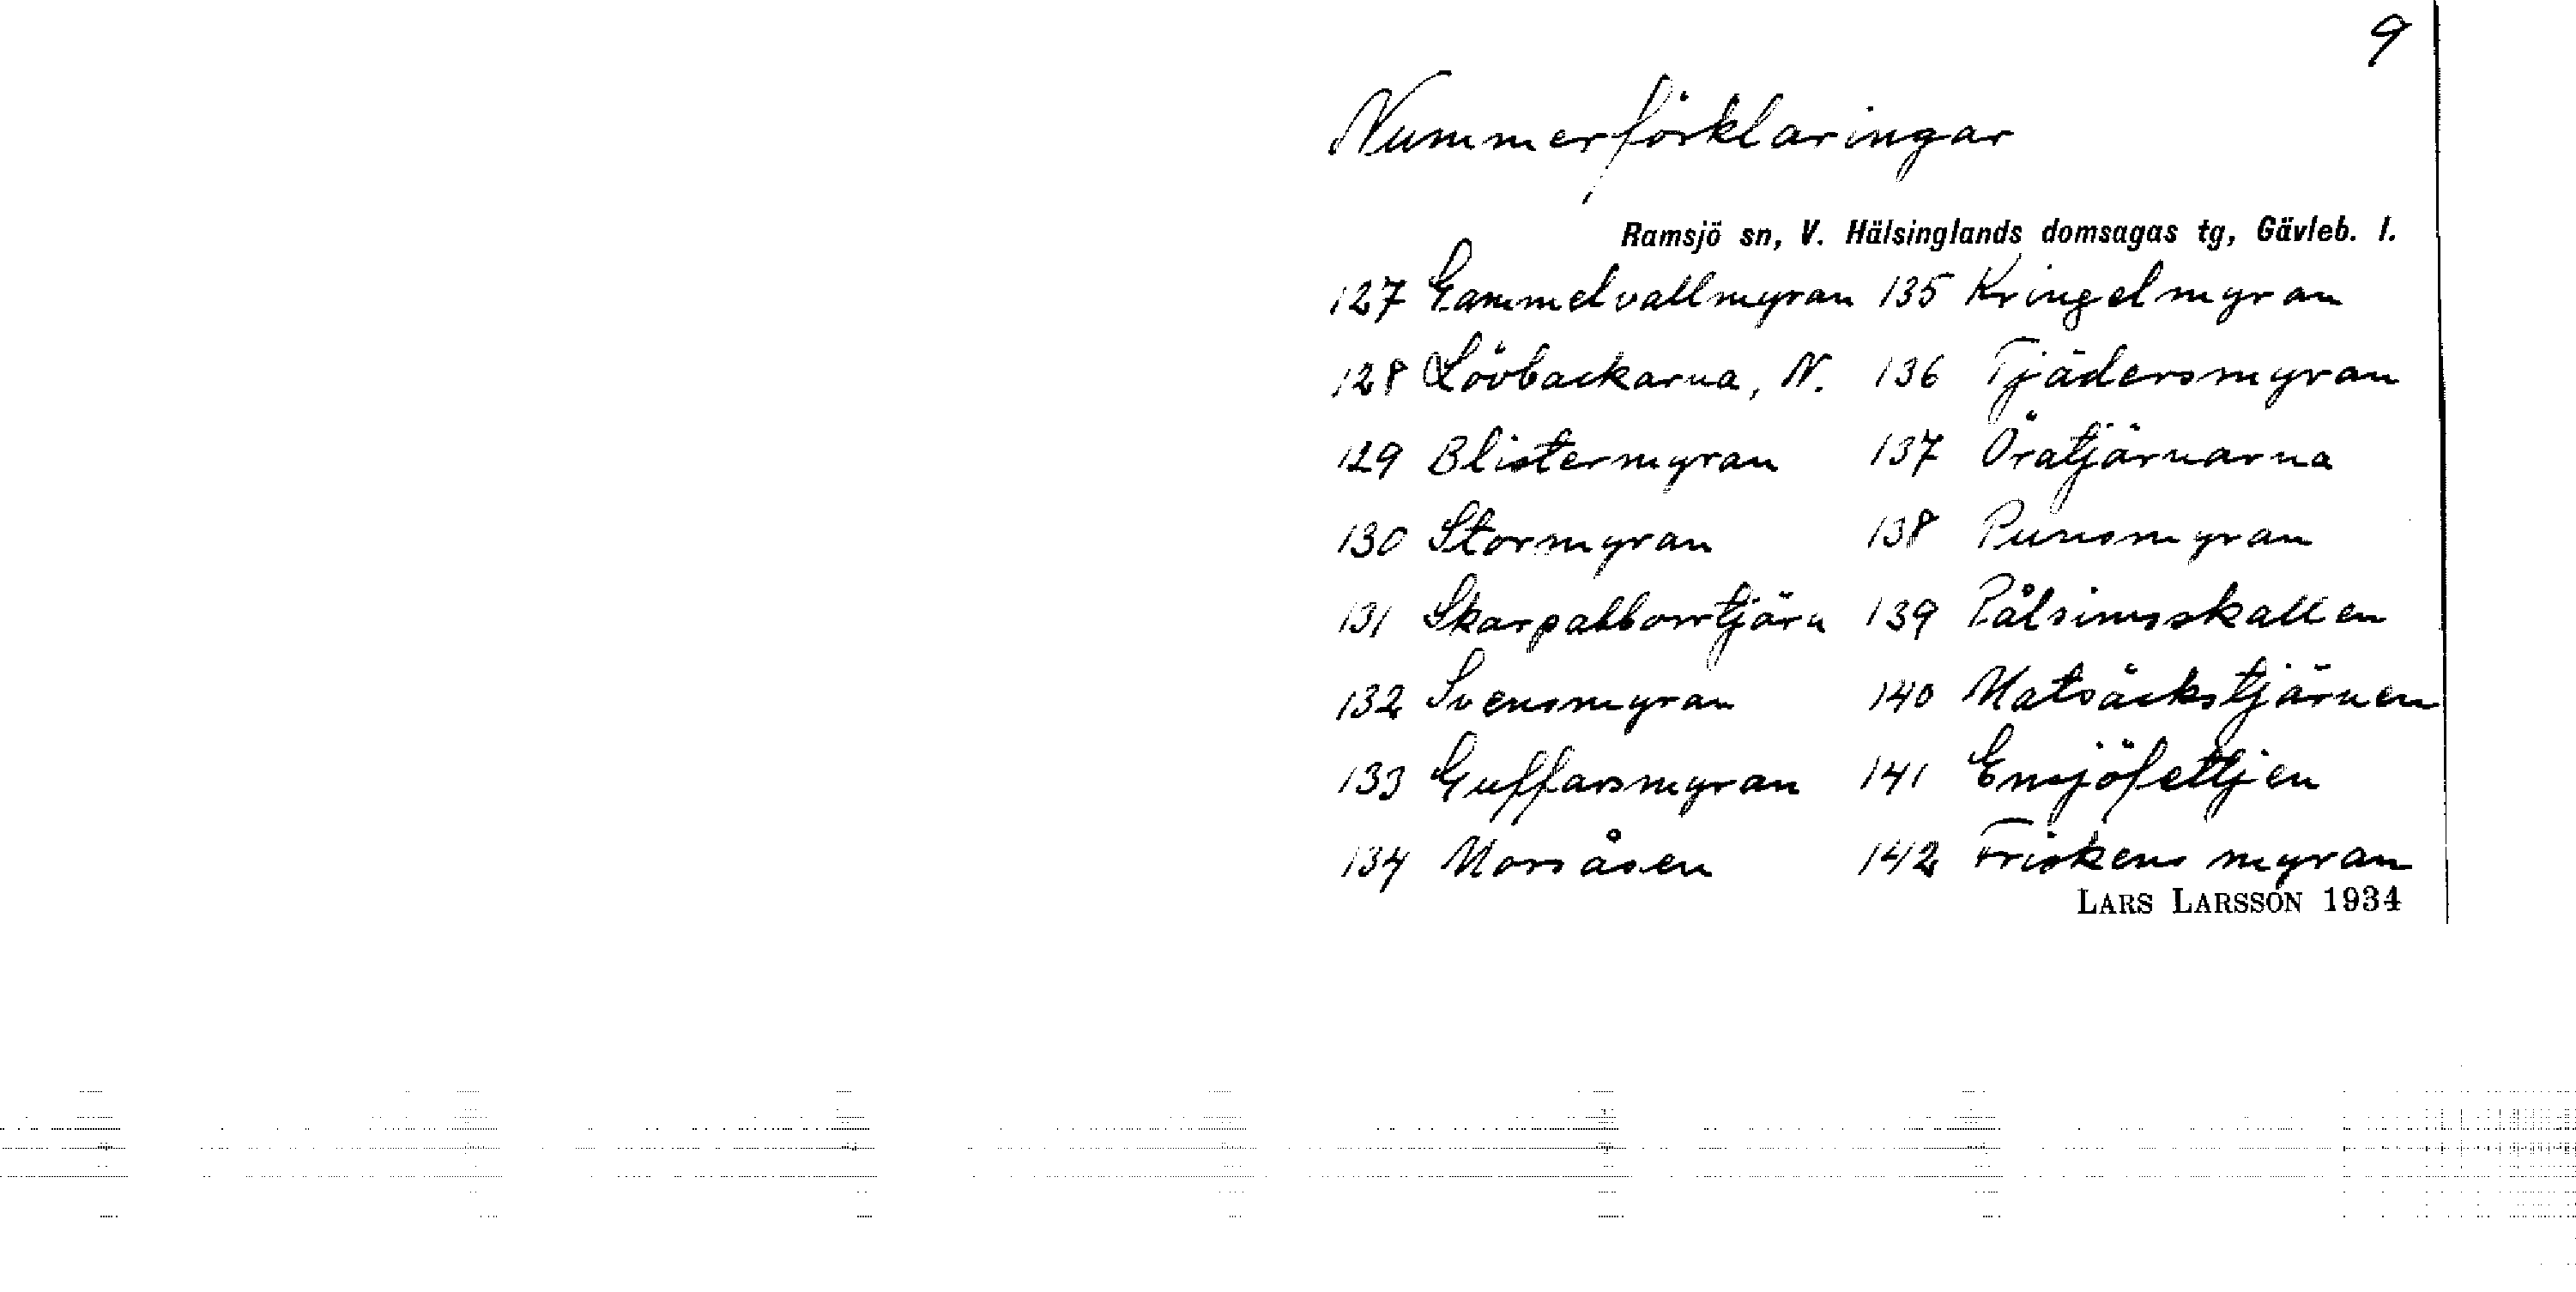 9
Nummerförklaringar
Ramsjö sn, V. Hälsinglands domsagas tg, Gävleb. l.
127 Gammelvallmyran 135 Kringelmyran
128 Lövbackarna, N. 136 Tjädersmyran
129 Blistermyran 137 Öratjärnarna
130 Stormyran 138 Punsmyran
131 Skarpabborrtjärn 139 Pålsinsskallen
132 Svensmyran 140 Matsäckstjärnen
133 Guffarsmyran 141 Ensjöfettjen
134 Morsåsen 142 Friskens myran
LARS LARSSON 1934